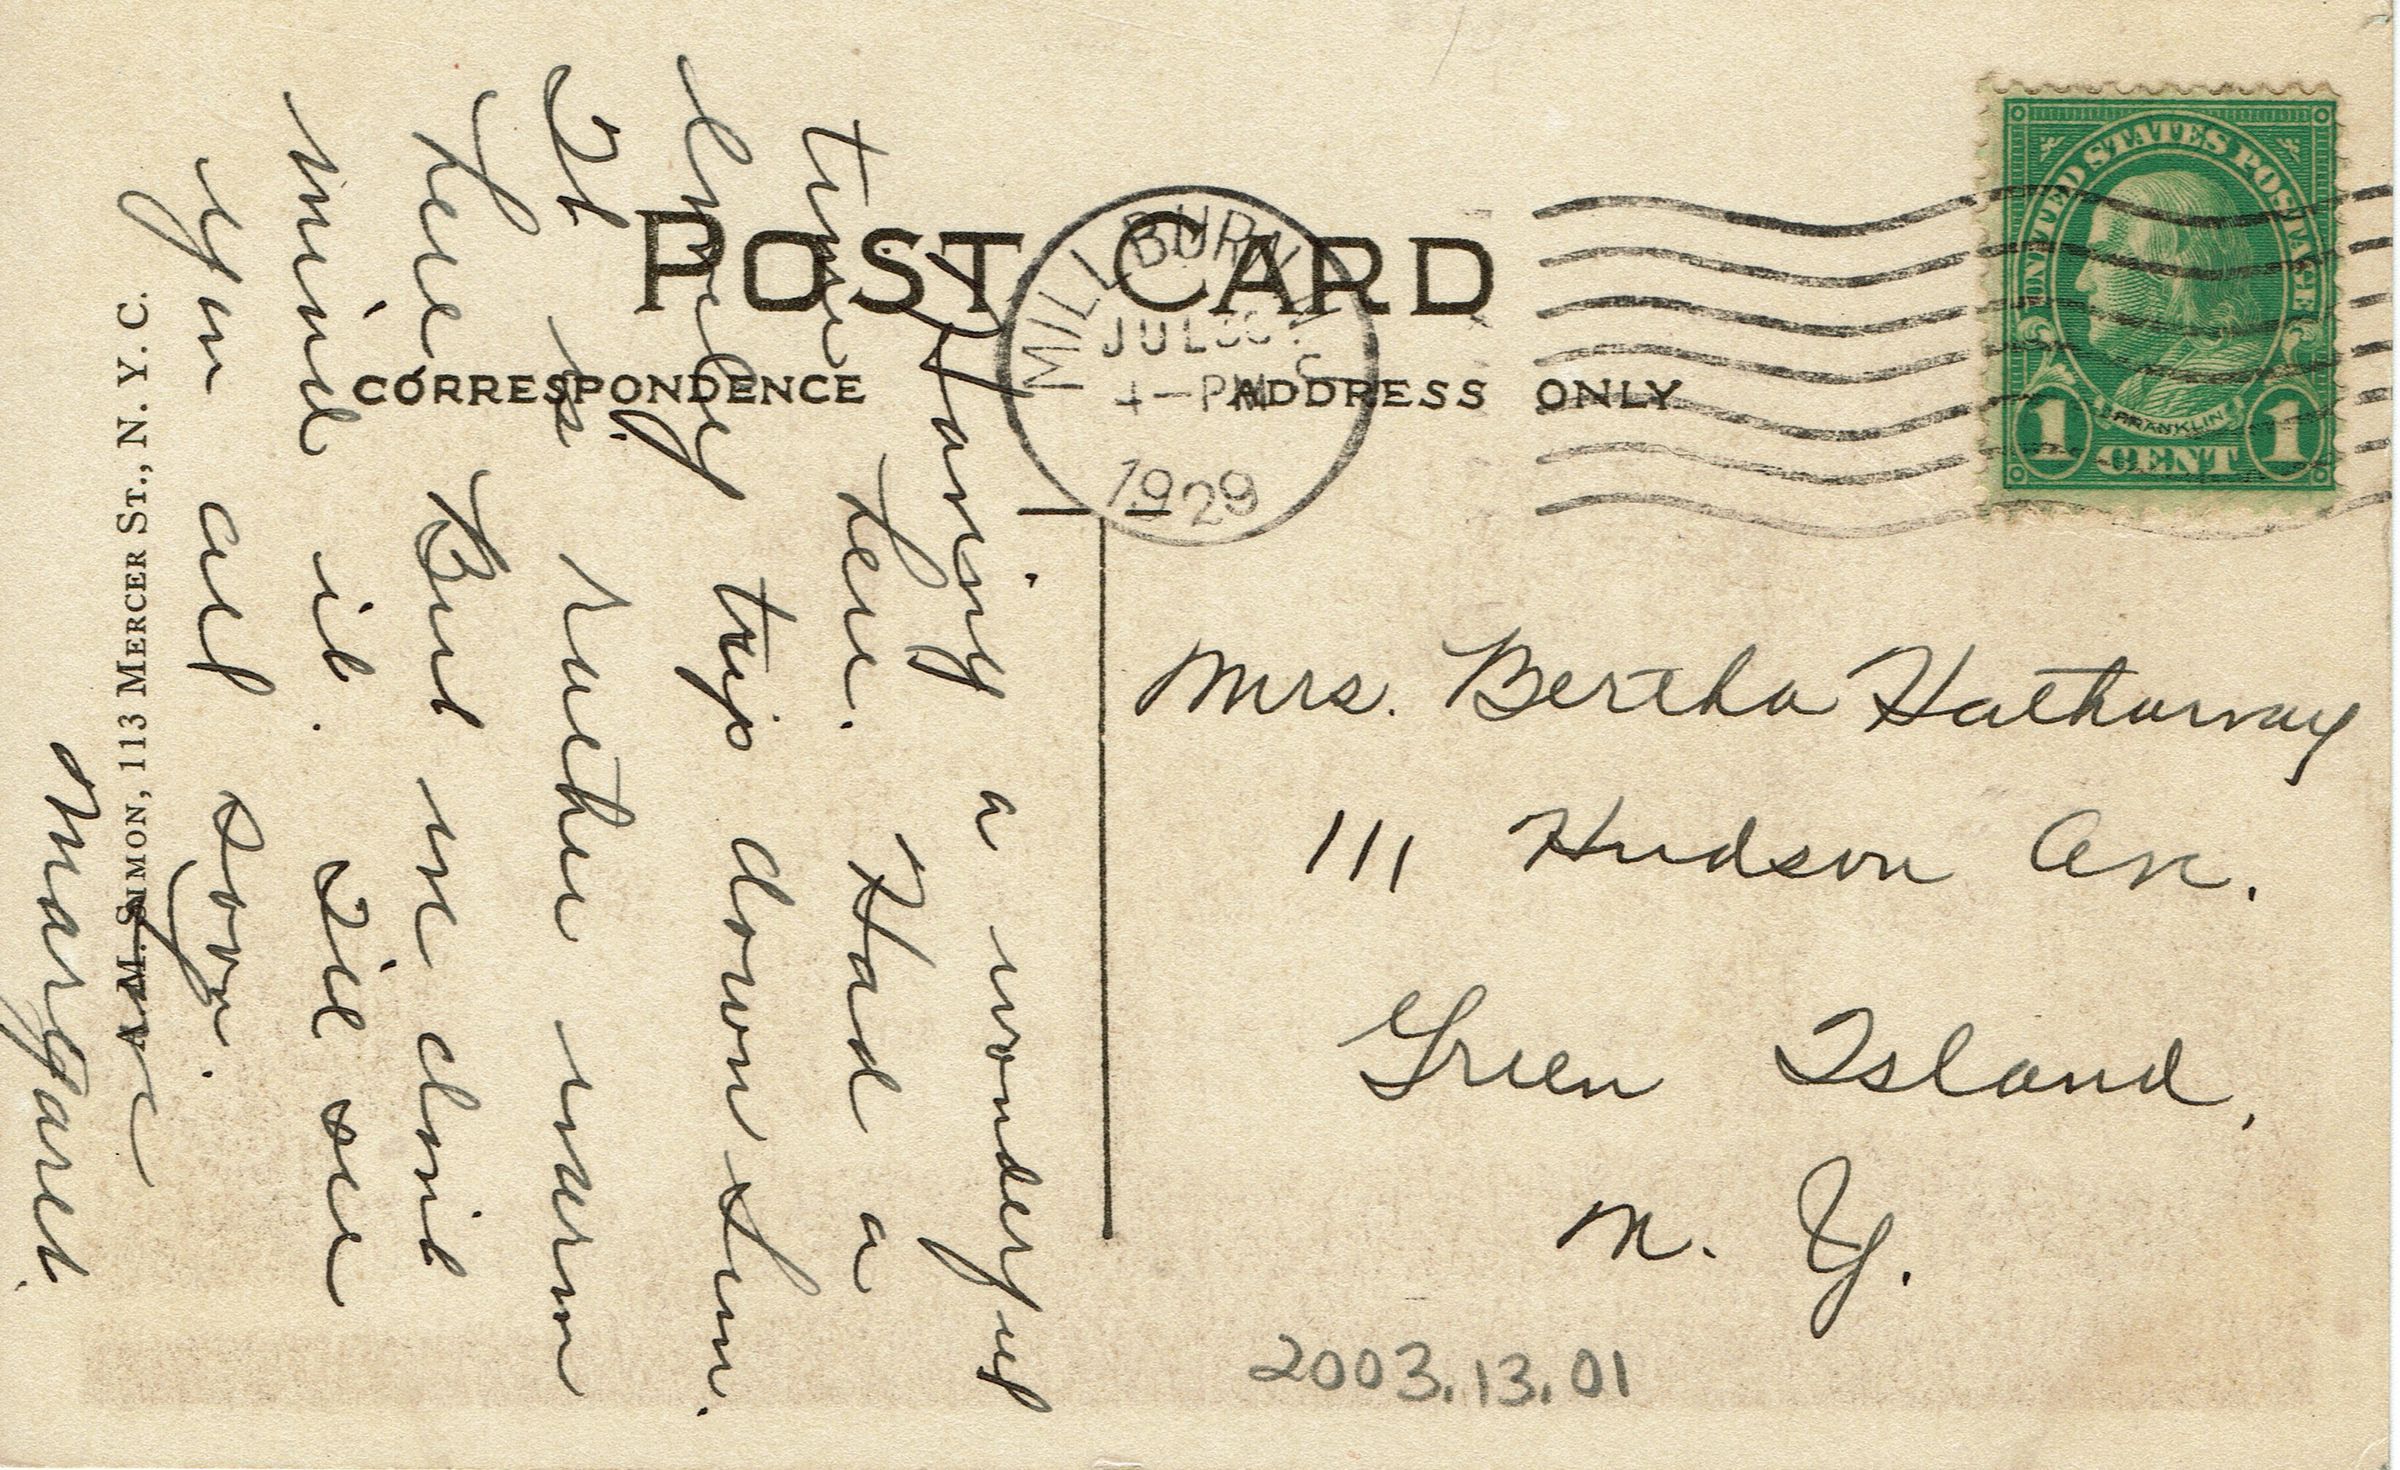 POST CARD
CORRESPONDENCE
ADDRESS ONLY
MILLBURN
JUL
4-PM
1929
UNITED STATES POSTAGE
FRANKLIN
1 CENT 1
Having a wonderful
time here. Had a
lovely trip down Sun.
It is rather warm
here but we don't
mind it. I'll see
you all soon.
Margaret.
A. M. SIMON, 113 MERCER ST., N. Y. C.
Mrs. Bertha Hathaway
111 Hudson Ave.
Green Island,
N. Y.
2003.13.01